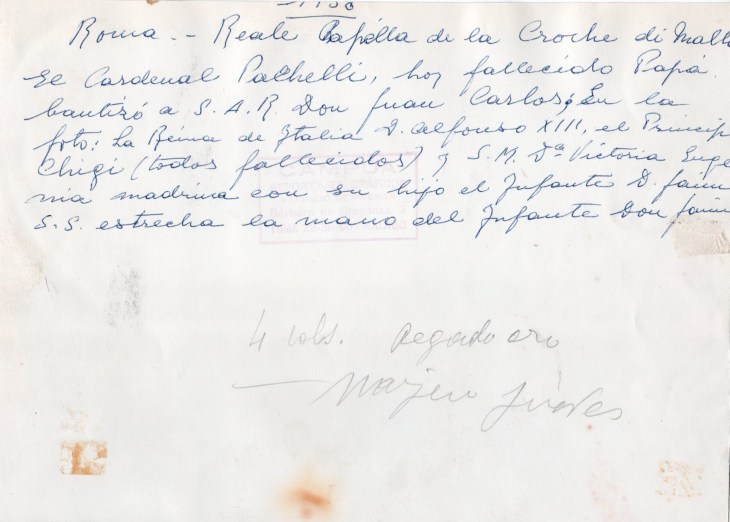 Roma.- Reale Capélla de la Croche di Malt
El Cardenal Pachelli, hoy fallecido Papá.
bautizó a S.A.R. Don Juan Carlos; En la
foto: La Reina de Italia D. Alfonso XIII, el Princip
Chigi (todos fallecidos) y S.M. Dª Victoria Euge
nia madrina con su hijo el Infante D. Jaim
S.S. estrecha la mano del Infante Don Jaim
CAMPÚA
4 cols.